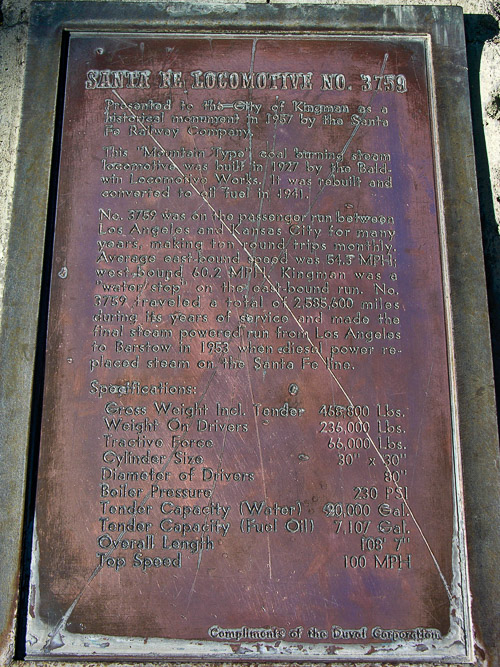 SANTA FE LOCOMOTIVE NO. 3759
Presented to the City of Kingman as a
historical monument in 1957 by the Santa
Fe Railway Company.
This "Mountain Type" coal burning steam
locomotive was built in 1927 by the Bald-
win Locomotive Works. It was rebuilt and
converted to oil fuel in 1941.
No. 3759 was on the passenger run between
Los Angeles and Kansas City for many
years, making ten round trips monthly.
Average east-bound speed was 54.3 MPH;
west-bound 60.2 MPH. Kingman was a
"water stop" on the east-bound run. No.
3759 traveled a total of 2,585,600 miles
during its years of service and made the
final steam powered run from Los Angeles
to Barstow in 1953 when diesel power re-
placed steam on the Santa Fe line.
Specifications:
Gross Weight Incl. Tender 468,800 Lbs.
Weight On Drivers 236,000 Lbs.
Tractive Force 66,000 Lbs.
Cylinder Size 30" x 30"
Diameter of Drivers 80"
Boiler Pressure 230 PSI
Tender Capacity (Water) 20,000 Gal.
Tender Capacity (Fuel Oil) 7,107 Gal.
Overall Length 108' 7"
Top Speed 100 MPH
Compliments of the Duval Corporation